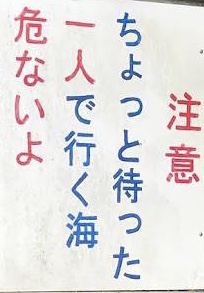 注意
ちょっと待った
一人で行く海
危ないよ